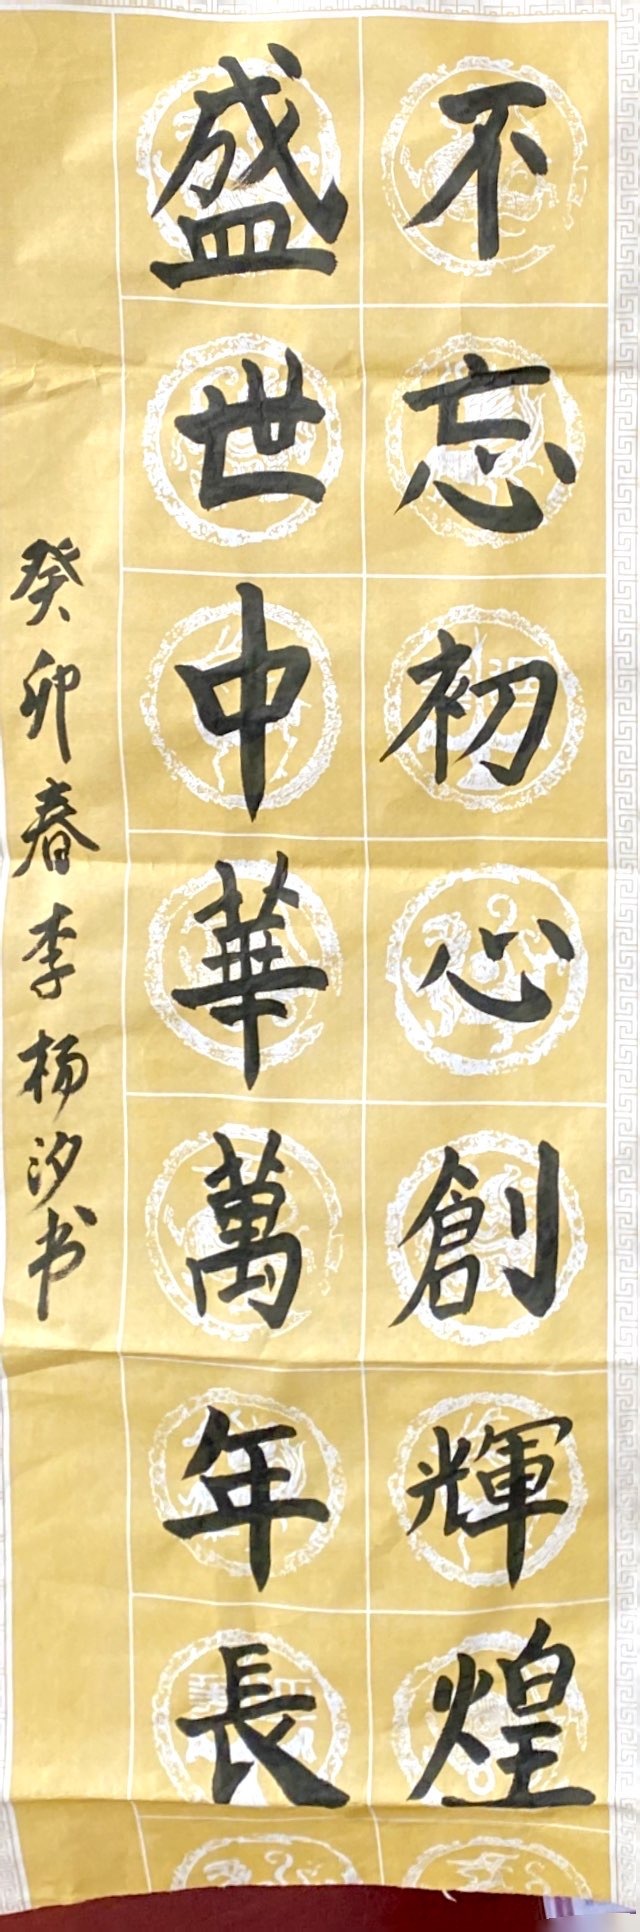 不忘初心創輝煌
盛世中華萬年長
癸卯春李杨汐书